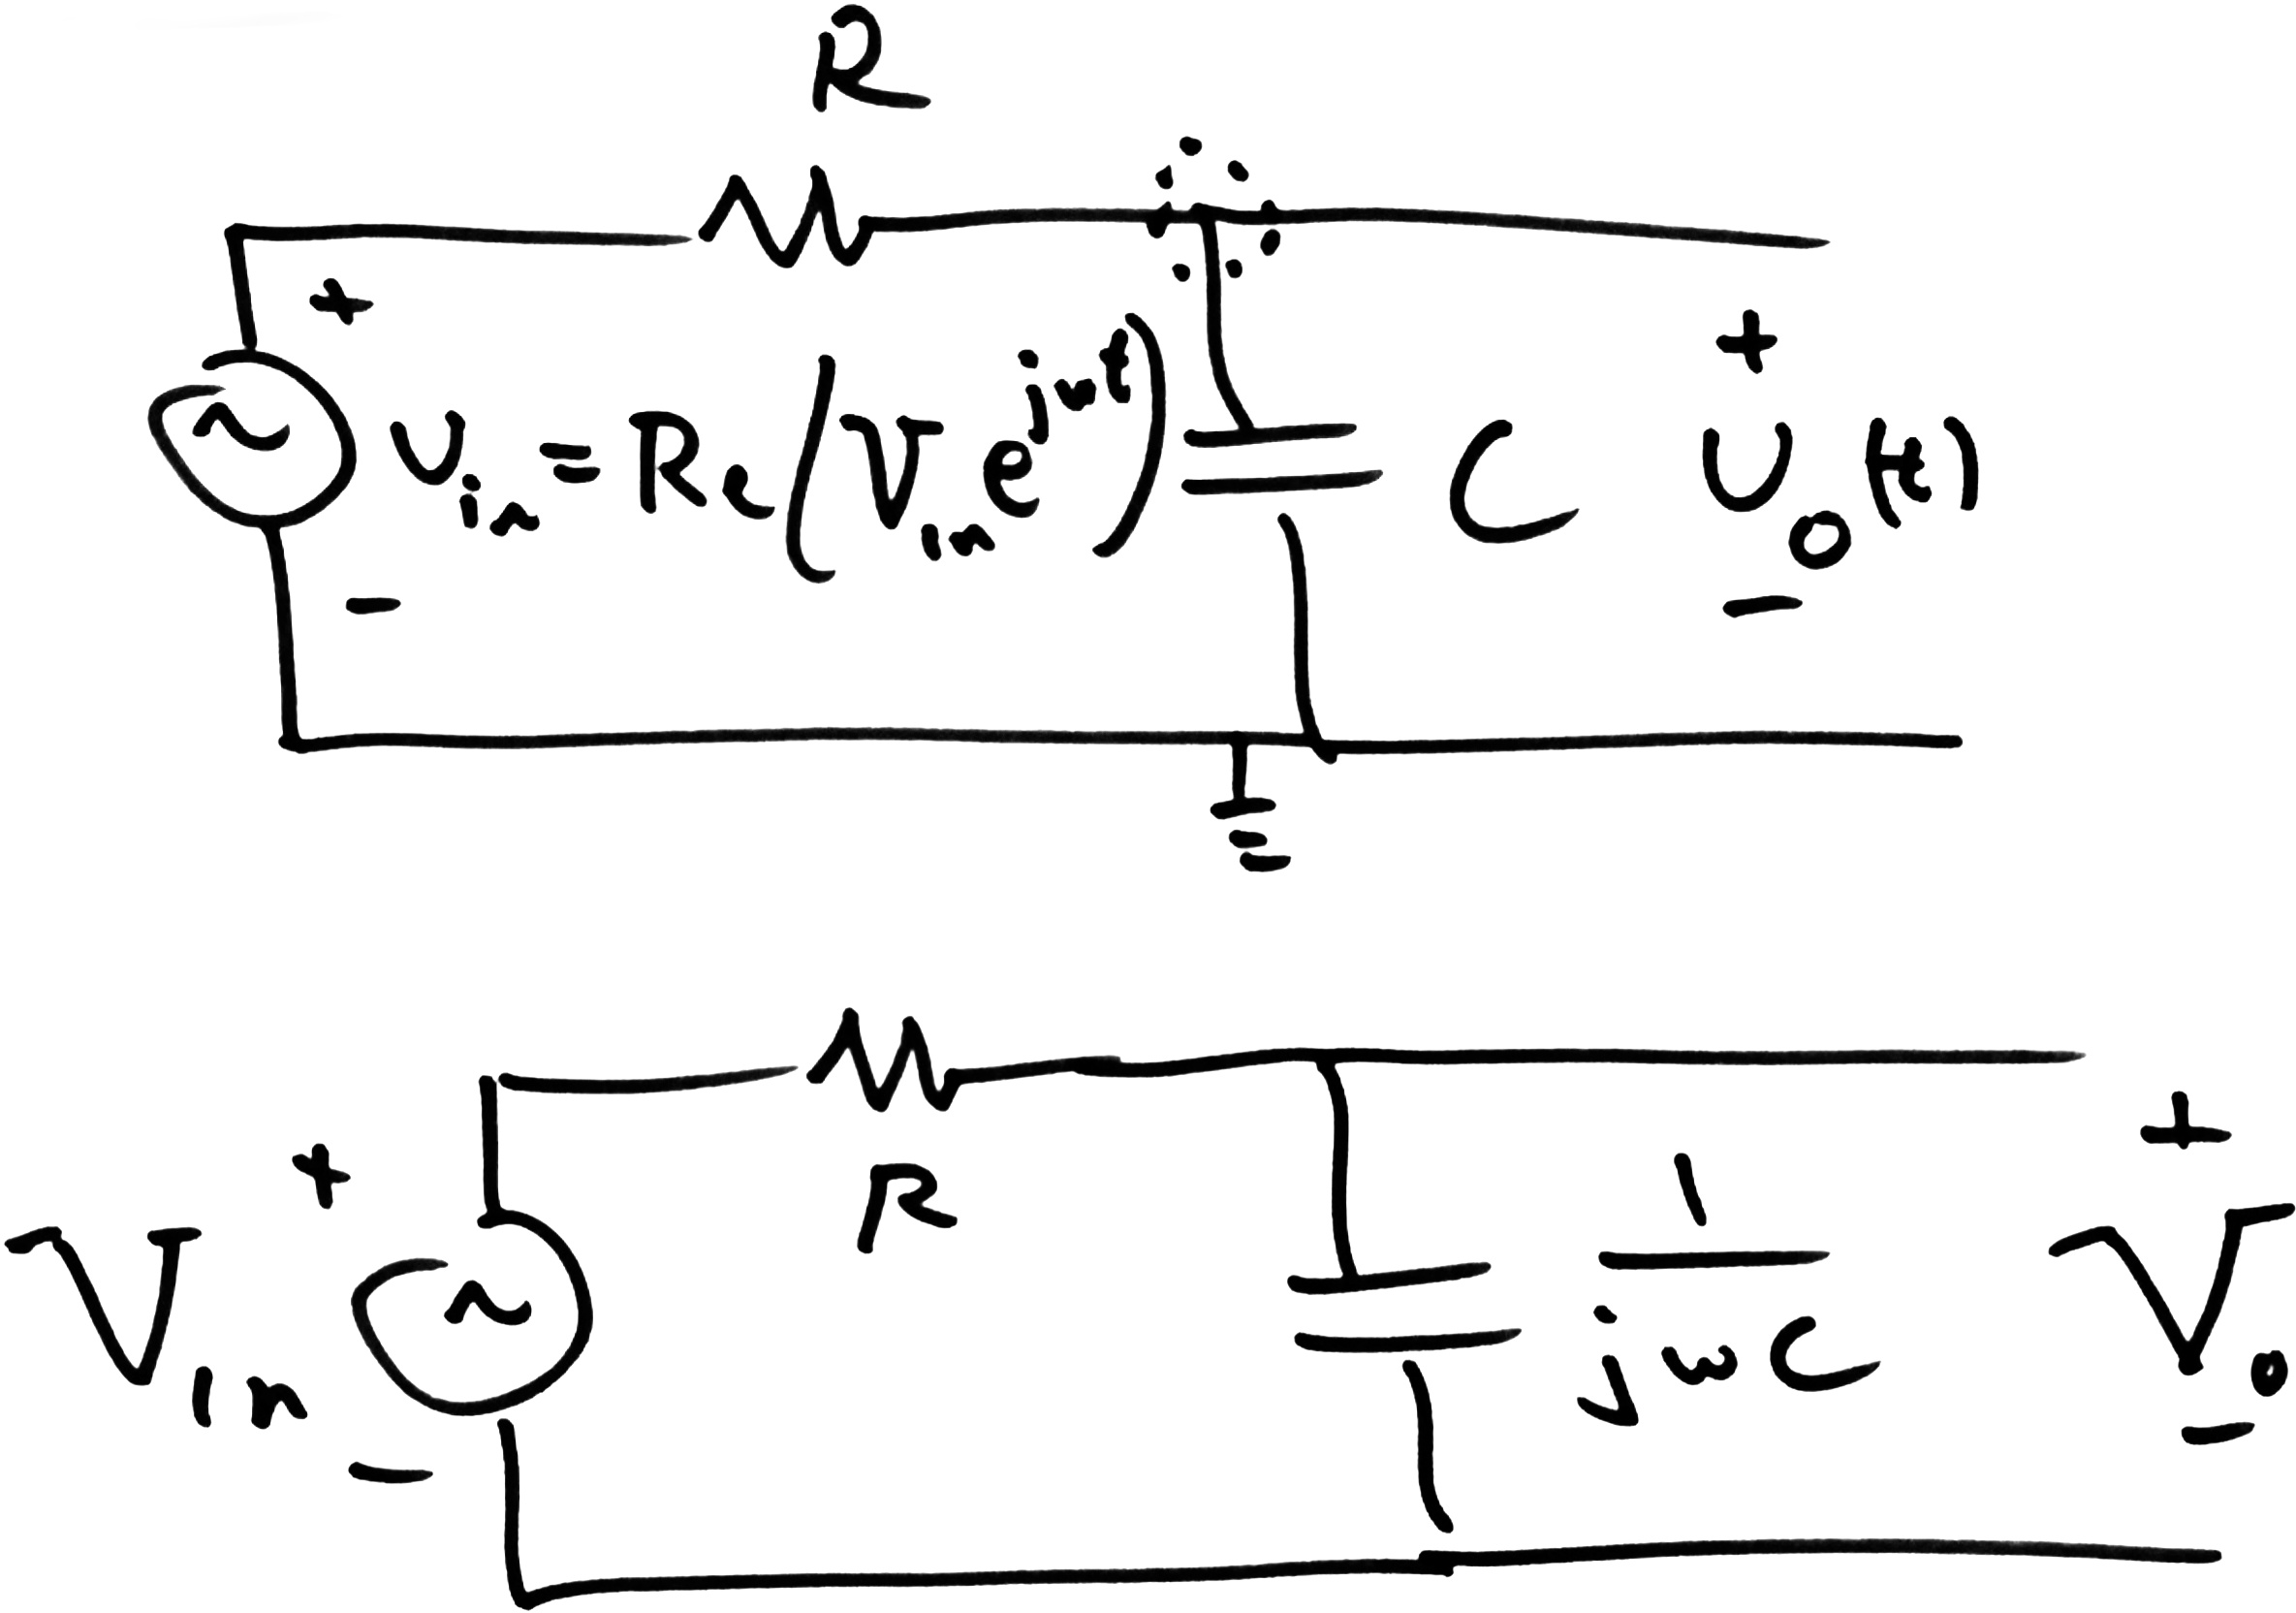 R
+
υ_in = Re(V_in e^{jωt})
-
C
+
υ_o(t)
-
R
+
V_in
-
1/jωC
+
V_o
-